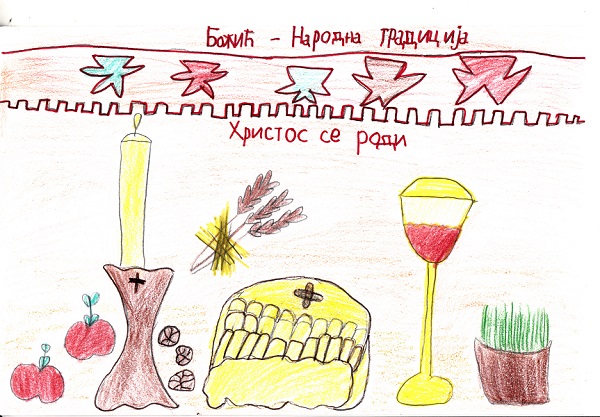 Божић - Народна традиција
Христос се роди